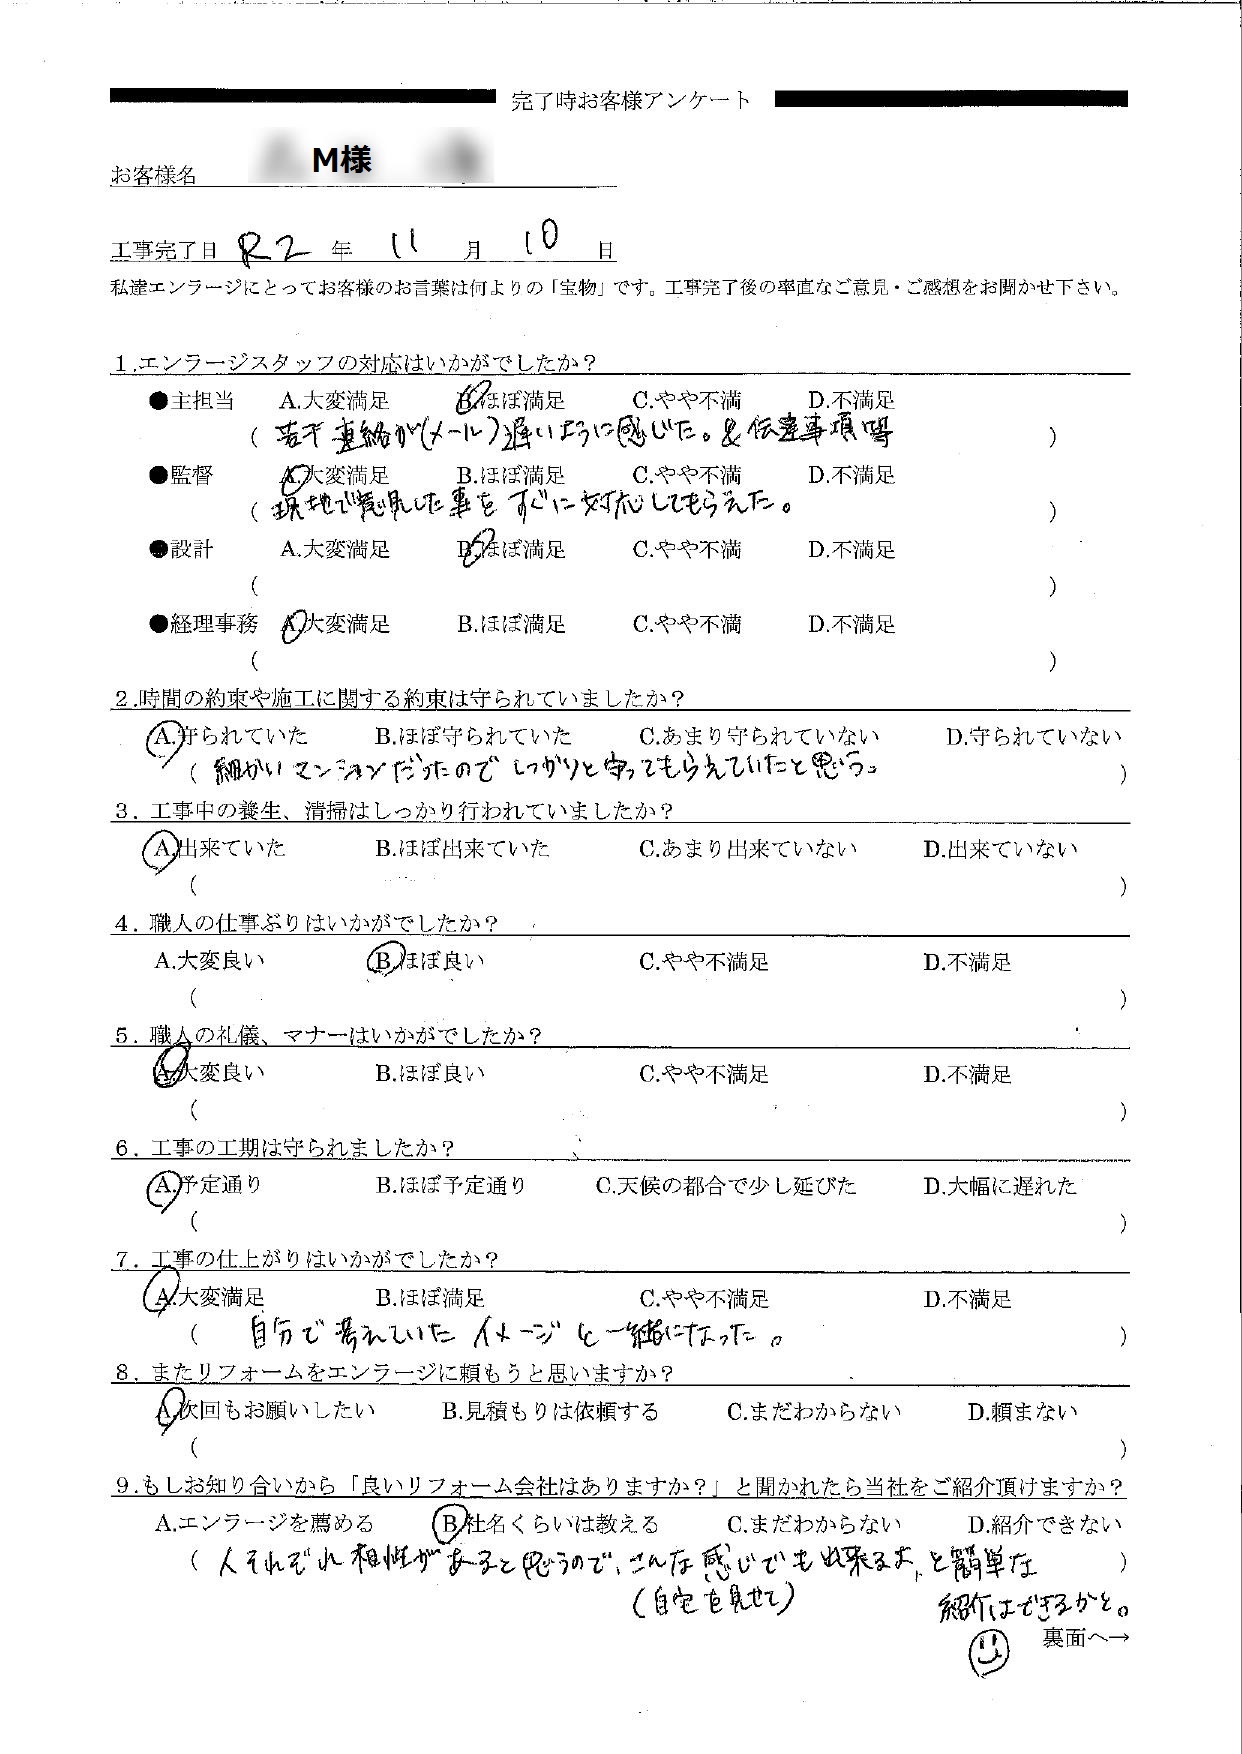 完了時お客様アンケート
お客様名 M様
工事完了日 R2 年 11 月 10 日
私達エンラージにとってお客様のお言葉は何よりの「宝物」です。工事完了後の率直なご意見・ご感想をお聞かせ下さい。
1.エンラージスタッフの対応はいかがでしたか？
●主担当 A.大変満足 B.ほぼ満足 C.やや不満 D.不満足
( 若干連絡が(メール)遅いように感じた。& 伝達事項等 )
●監督 A.大変満足 B.ほぼ満足 C.やや不満 D.不満足
( 現地で意見した事をすぐに対応してもらえた。 )
●設計 A.大変満足 B.ほぼ満足 C.やや不満 D.不満足
( )
●経理事務 A.大変満足 B.ほぼ満足 C.やや不満 D.不満足
( )
2.時間の約束や施工に関する約束は守られていましたか？
A.守られていた B.ほぼ守られていた C.あまり守られていない D.守られていない
( 細かいマンションだったのでしっかりと守ってもらえていたと思う。 )
3. 工事中の養生、清掃はしっかり行われていましたか？
A.出来ていた B.ほぼ出来ていた C.あまり出来ていない D.出来ていない
( )
4. 職人の仕事ぶりはいかがでしたか？
A.大変良い B.ほぼ良い C.やや不満足 D.不満足
( )
5. 職人の礼儀、マナーはいかがでしたか？
A.大変良い B.ほぼ良い C.やや不満足 D.不満足
( )
6. 工事の工期は守られましたか？
A.予定通り B.ほぼ予定通り C.天候の都合で少し延びた D.大幅に遅れた
( )
7. 工事の仕上がりはいかがでしたか？
A.大変満足 B.ほぼ満足 C.やや不満足 D.不満足
( 自分で考えていたイメージと一緒になった。 )
8. またリフォームをエンラージに頼もうと思いますか？
A.次回もお願いしたい B.見積もりは依頼する C.まだわからない D.頼まない
( )
9.もしお知り合いから「良いリフォーム会社はありますか？」と聞かれたら当社をご紹介頂けますか？
A.エンラージを薦める B.社名くらいは教える C.まだわからない D.紹介できない
( 人それぞれ相性があると思うので、こんな感じでも出来るよ、と簡単な )
(自宅を見せて) 紹介はできるかと。
裏面へ→